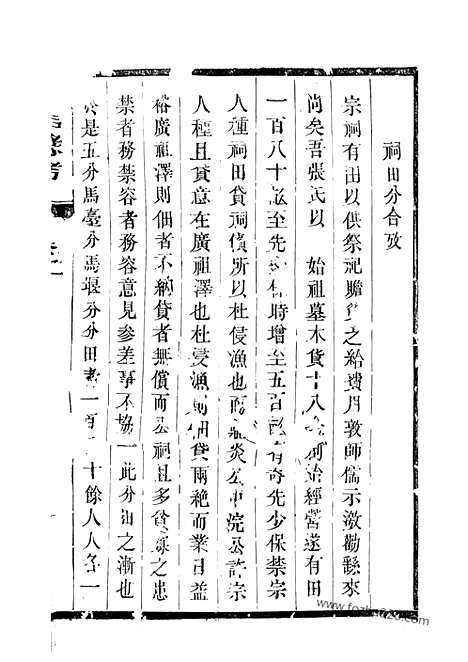 祠田分合攷
宗祠有田以供祭祀贍之給費丹敦師儒示激勸繇來
尚矣吾張氏以 始祖墓木貸十八創始經營遂有田
一百八十畝至先時增至五百畝有奇先少保禁宗
人種祠田貸祠債所以杜侵漁也炎公中浣公許宗
人種且貸意在廣祖澤也杜侵漁則佃貸兩絶而業日益
裕廣祖澤則佃者不納貸者無償而公祠且多貸之患
禁者務禁容者務容意見參差事不協一此分田之漸也
於是五分馬臺分馬堰分分田者一百十餘人人各一